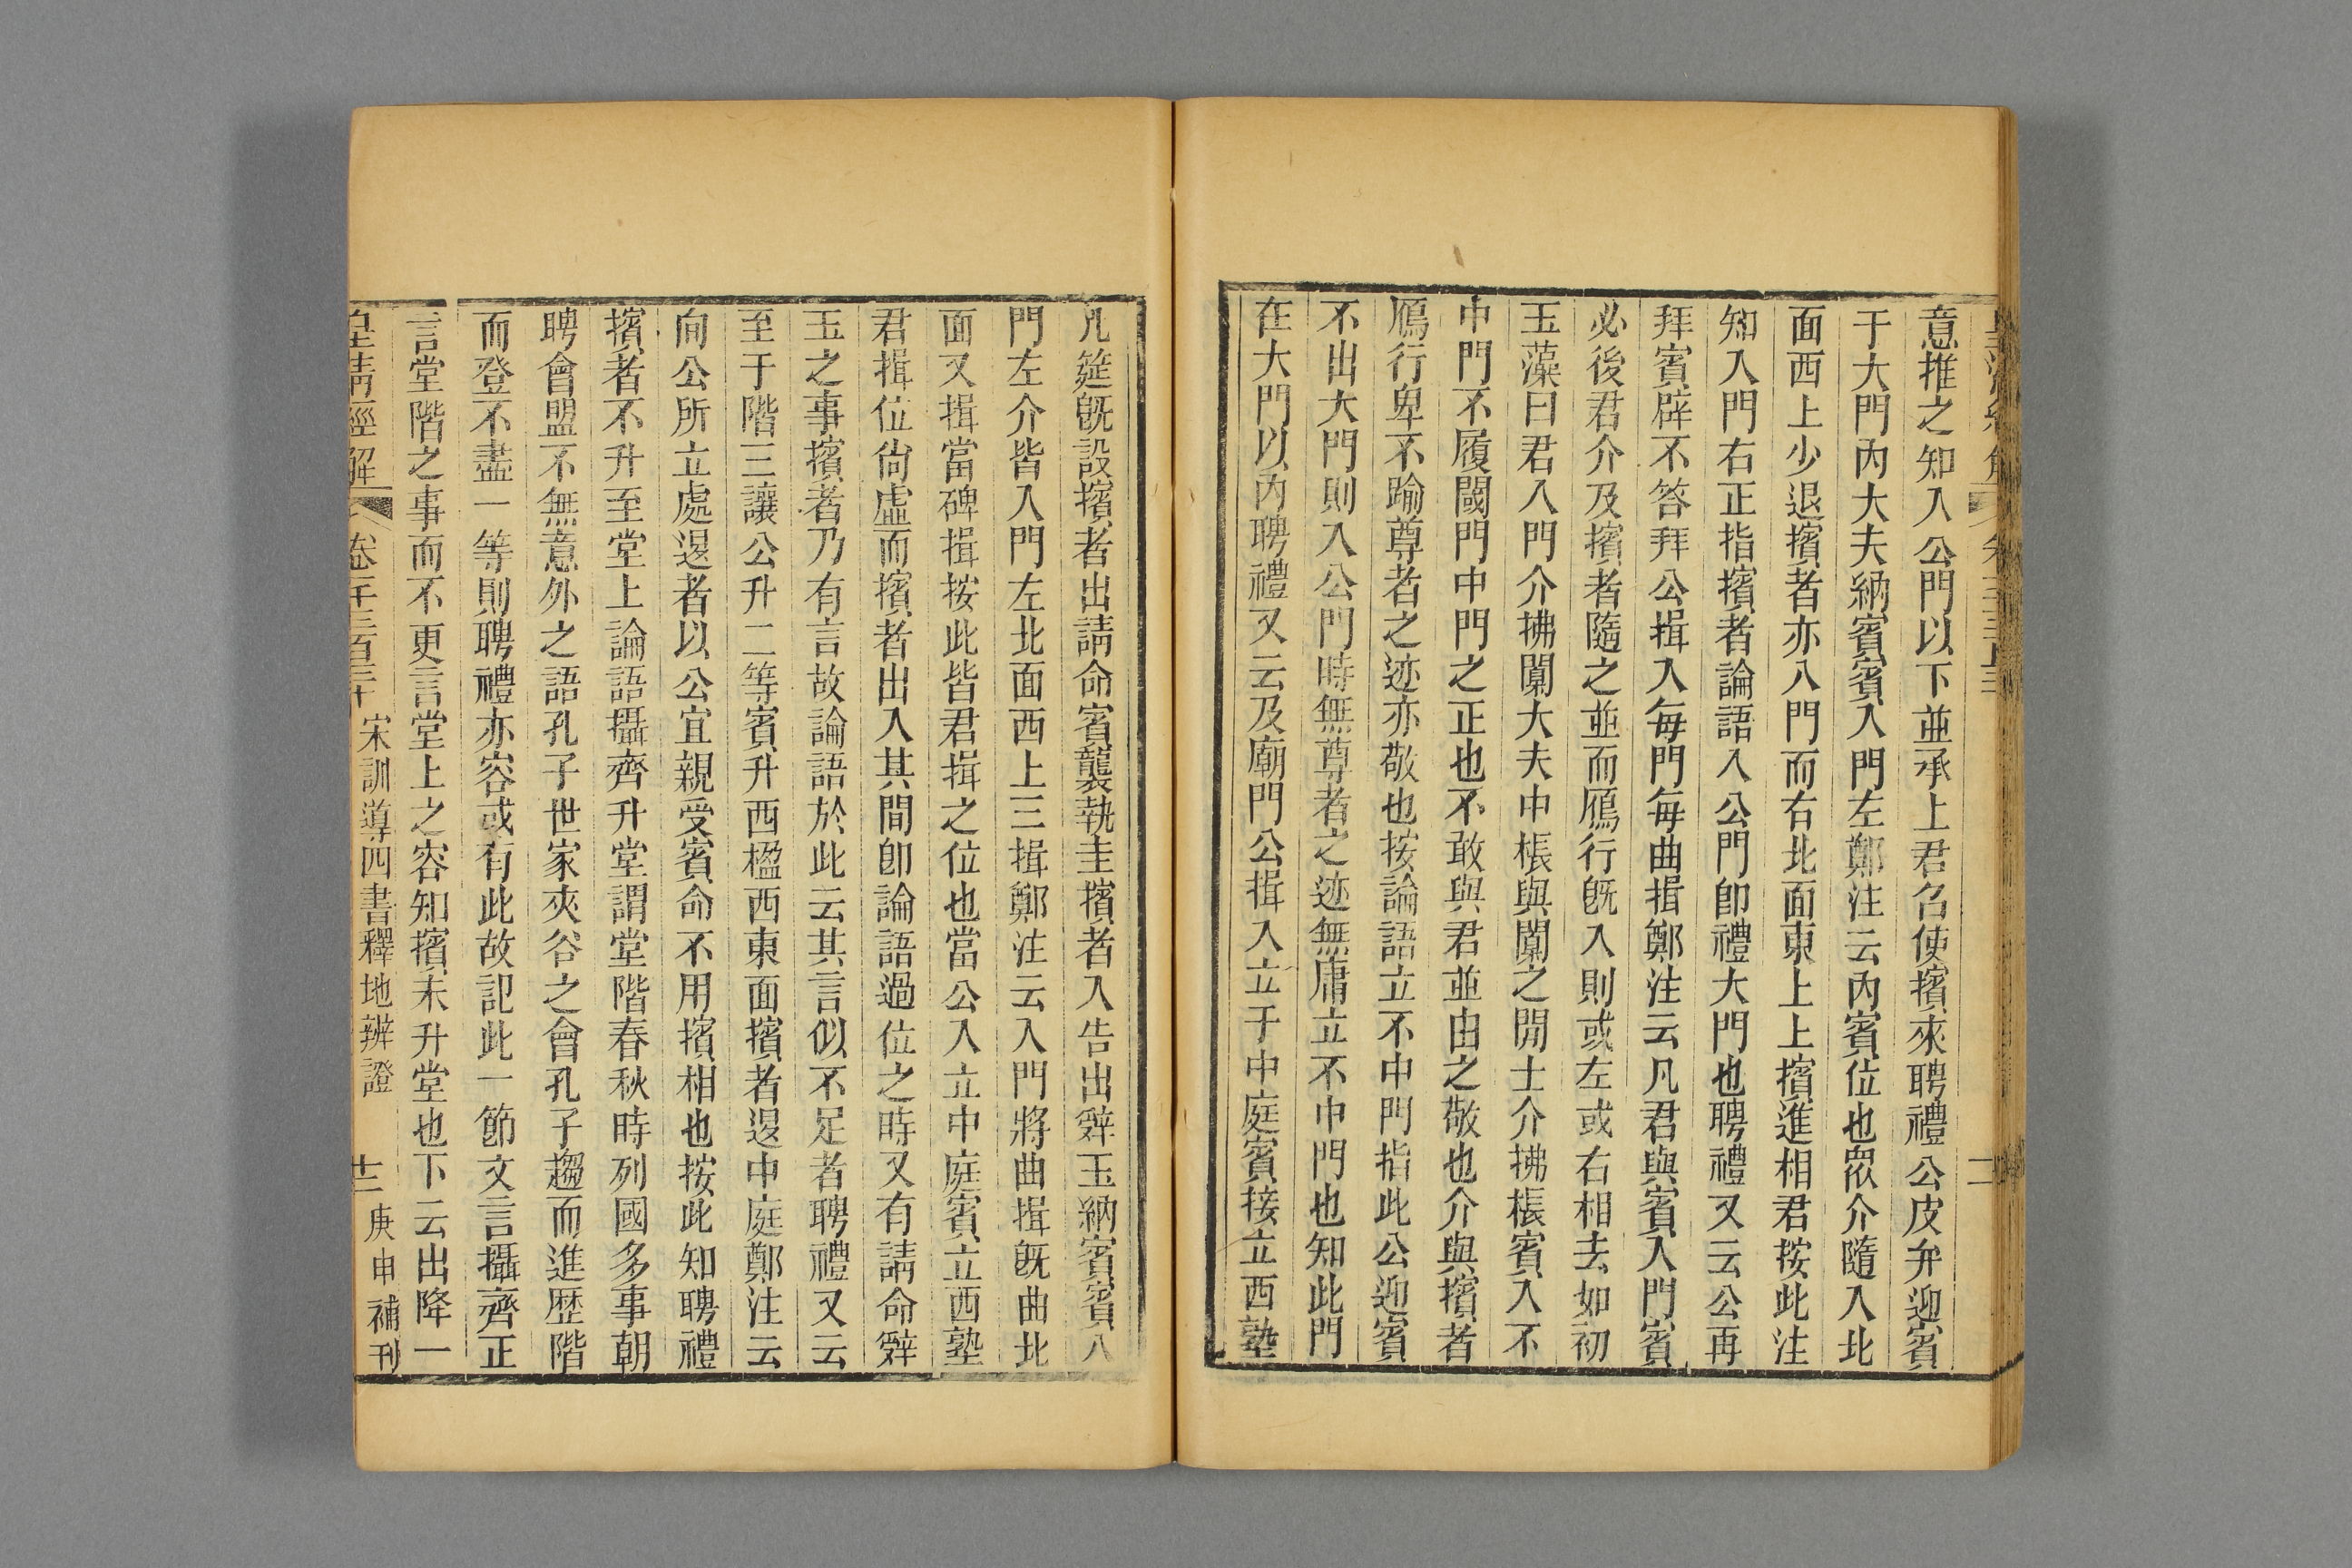 意推之知入公門以下並承上君召使擯來聘禮公皮弁迎賓
于大門內大夫納賓賓入門左鄭注云內賓位也衆介隨入北
面西上少退擯者亦入門而右北面東上上擯進相君按此注
知入門右正指擯者論語入公門卽禮大門也聘禮又云公再
拜賓辟不答拜公揖入每門每曲揖鄭注云凡君與賓入門賓
必後君介及擯者隨之並而鴈行旣入則或左或右相去如初
玉藻曰君入門介拂闑大夫中棖與闑之閒士介拂棖賓入不
中門不履閾門中門之正也不敢與君並由之敬也介與擯者
鴈行卑不踰尊者之迹亦敬也按論語立不中門指此公迎賓
不出大門則入公門時無尊者之迹無庸立不中門也知此門
在大門以內聘禮又云及廟門公揖入立于中庭賓接立西塾
凡筵旣設擯者出請命賓襲執圭擯者入告出辭玉納賓賓入
門左介皆入門左北面西上三揖鄭注云入門將曲揖旣曲北
面又揖當碑揖按此皆君揖之位也當公入立中庭賓立西塾
君揖位尙虛而擯者出入其間卽論語過位之時又有請命辭
玉之事擯者乃有言故論語於此云其言似不足者聘禮又云
至于階三讓公升二等賓升西楹西東面擯者退中庭鄭注云
向公所立處退者以公宜親受賓命不用擯相也按此知聘禮
擯者不升至堂上論語攝齊升堂謂堂階春秋時列國多事朝
聘會盟不無意外之語孔子世家夾谷之會孔子趨而進歷階
而登不盡一等則聘禮亦容或有此故記此一節文言攝齊正
言堂階之事而不更言堂上之容知擯未升堂也下云出降一
皇淸經解 卷一千三百三十 宋訓導四書釋地辨證 十二 庚申補刊